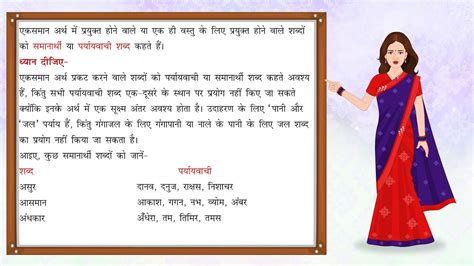 एकसमान अर्थ में प्रयुक्त होने वाले या एक ही वस्तु के लिए प्रयुक्त होने वाले शब्दों
को समानार्थी या पर्यायवाची शब्द कहते हैं।
ध्यान दीजिए-
एकसमान अर्थ प्रकट करने वाले शब्दों को पर्यायवाची या समानार्थी शब्द कहते अवश्य
हैं, किंतु सभी पर्यायवाची शब्द एक-दूसरे के स्थान पर प्रयोग नहीं किए जा सकते
क्योंकि इनके अर्थ में एक सूक्ष्म अंतर अवश्य होता है। उदाहरण के लिए 'पानी और
'जल' पर्याय हैं, किंतु गंगाजल के लिए गंगापानी या नाले के पानी के लिए जल शब्द
का प्रयोग नहीं किया जा सकता है।
आइए, कुछ समानार्थी शब्दों को जानें-
शब्द पर्यायवाची
असुर दानव, दनुज, राक्षस, निशाचर
आसमान आकाश, गगन, नभ, व्योम, अंबर
अंधकार अँधेरा, तम, तिमिर, तमस